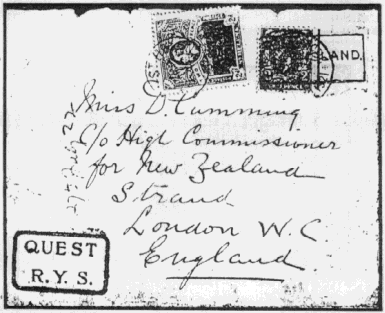 LAND.
Miss D. Cumming
C/o High Commissioner
for New Zealand
Strand
London W.C.
England
QUEST
R.Y.S.